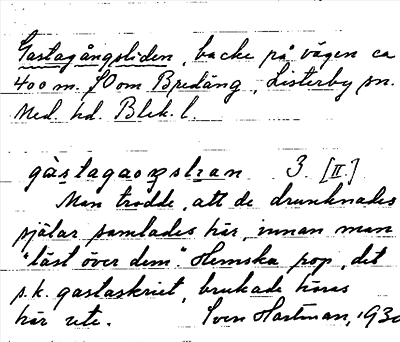 Gastagångsliden, backe på vägen ca
400 m. SO om Bredäng, Listerby sn.
Med. hd. Blek. l.
gàstagaoŋslian 3 [II.]
Man trodde, att de drunknades
själar samlades här, innan man
"läst över dem". Hemska rop, det
s.k. gastaskriet, brukade höras
här ute. Sven Hartman, 1930